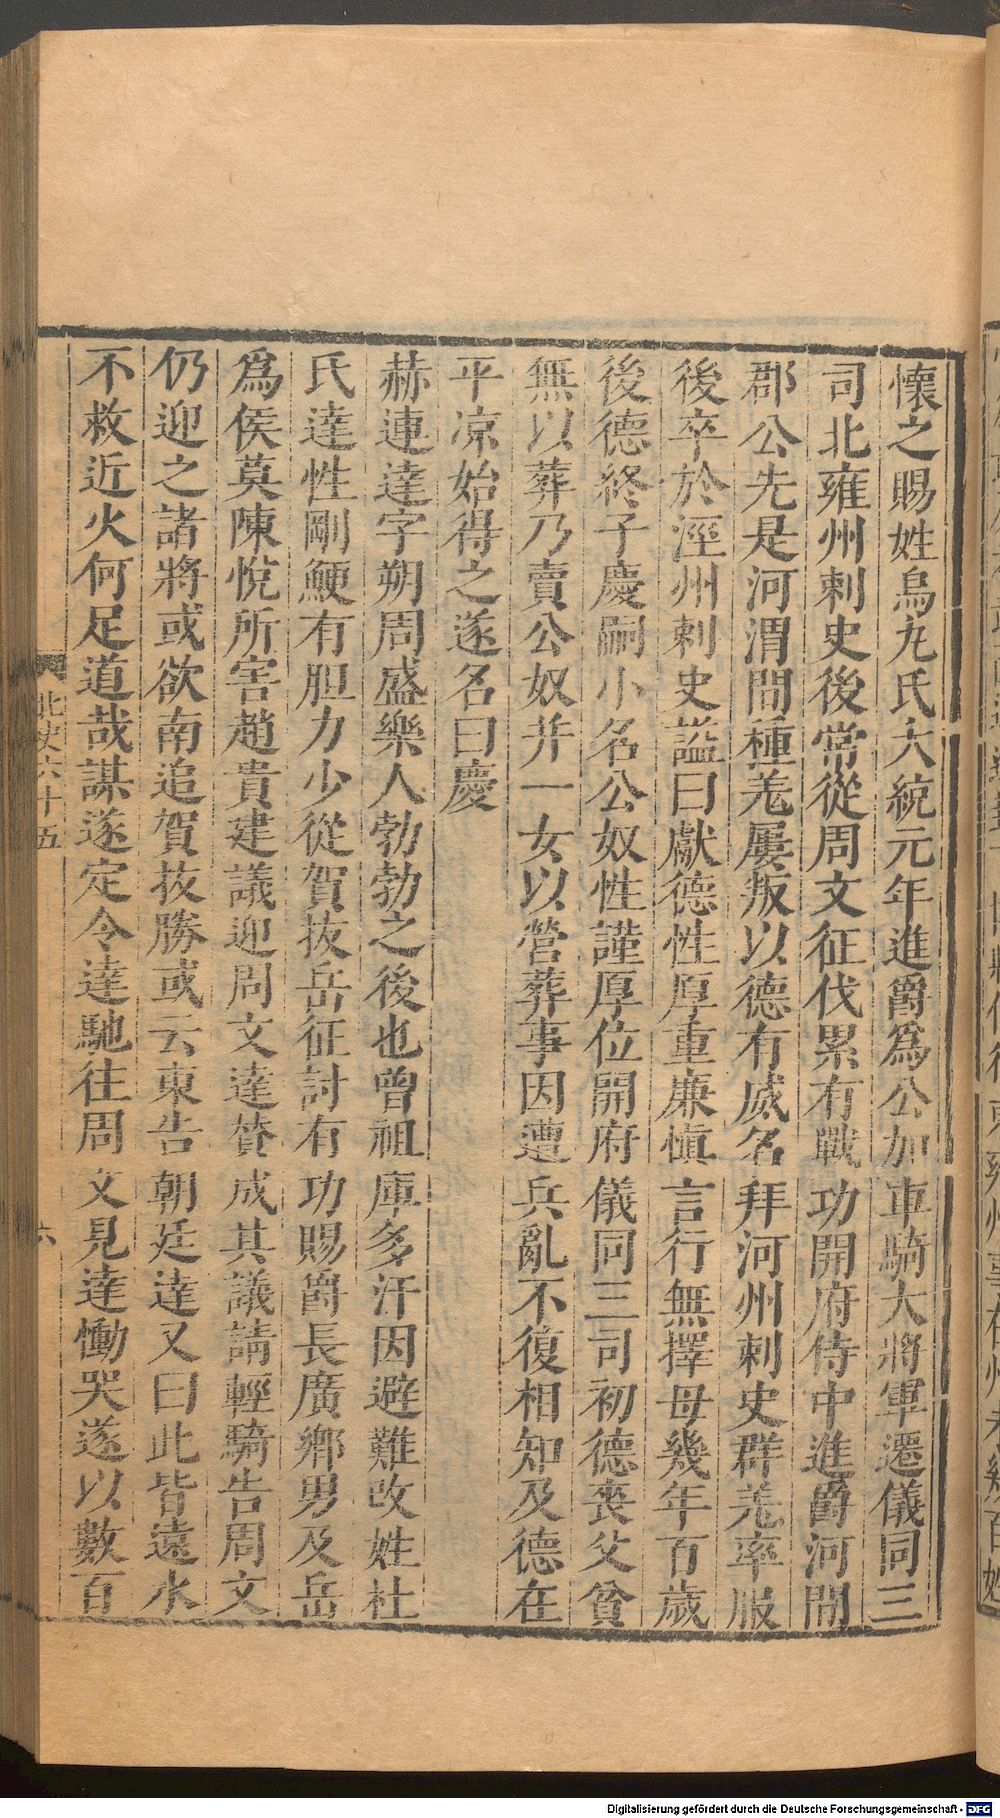 懷之賜姓烏丸氏大統元年進爵爲公加車騎大將軍遷儀同三
司北雍州刺史後常從周文征伐累有戰功開府侍中進爵河間
郡公先是河渭間種羌屢叛以德有威名拜河州刺史群羌率服
後卒於涇州刺史謚曰獻德性厚重廉慎言行無擇母幾年百歲
後德終子慶嗣小名公奴性謹厚位開府儀同三司初德喪父貧
無以葬乃賣公奴并一女以營葬事因遭兵亂不復相知及德在
平凉始得之遂名曰慶
赫連達字朔周盛樂人勃勃之後也曾祖庫多汗因避難改姓杜
氏達性剛鯁有胆力少從賀拔岳征討有功賜爵長廣鄉男及岳
爲侯莫陳悅所害趙貴建議迎周文達贊成其議請輕騎告周文
仍迎之諸將或欲南追賀拔勝或云東告朝廷達又曰此皆遠水
不救近火何足道哉謀遂定令達馳往周文見達慟哭遂以數百
北史六十五
六
Digitalisierung gefördert durch die Deutsche Forschungsgemeinschaft - DFG